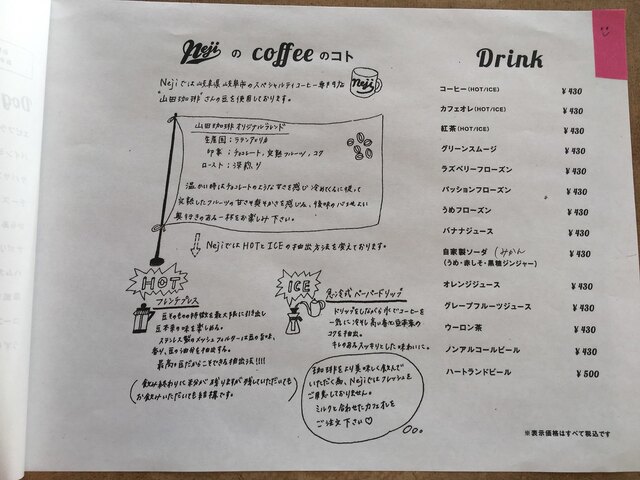 Neji の coffee のコト
Nejiでは岐阜県岐阜市のスペシャルティコーヒー専門店
"山田珈琲"さんの豆を使用しております。
neji
山田珈琲オリジナルブレンド
生産国：ラテンアメリカ
印象：チョコレート,完熟フルーツ,コク
ロースト：深煎り
温かい時はチョコレートのような甘さを感じ冷めてくるに従って
完熟したフルーツの甘さや爽やかさを感じる、後味のバランスよい
奥行きのある一杯をお楽しみ下さい。
NejiではHOTとICEの抽出方法を変えております。
HOT
フレンチプレス
豆そのものの特徴を最大限に引き出し
豆本来の味を楽しめる。
ステンレス製のメッシュフィルターは豆の旨味、
香り、豆の油分を抽出する。
最高の豆だからこそできる抽出方法!!!!
(飲み終わりに粉分が残りますが残していただいても
お飲みいただいても結構です。)
ICE
急冷式ペーパードリップ
ドリップをしながら氷でコーヒーを
一気に冷やし高い香りと豆本来の
コクを抽出。
キレのあるスッキリとした味わいに。
珈琲をより美味しく飲んで
いただく為、Nejiではフレッシュを
ご用意しておりません。
ミルクと合わせたカフェオレを
ご注文下さい♡
Drink
コーヒー(HOT/ICE) ¥430
カフェオレ(HOT/ICE) ¥430
紅茶(HOT/ICE) ¥430
グリーンスムージ ¥430
ラズベリーフローズン ¥430
パッションフローズン ¥430
うめフローズン ¥430
バナナジュース ¥430
自家製ソーダ みかん ¥430
(うめ・赤しそ・黒糖ジンジャー)
オレンジジュース ¥430
グレープフルーツジュース ¥430
ウーロン茶 ¥430
ノンアルコールビール ¥430
ハートランドビール ¥500
※表示価格はすべて税込です